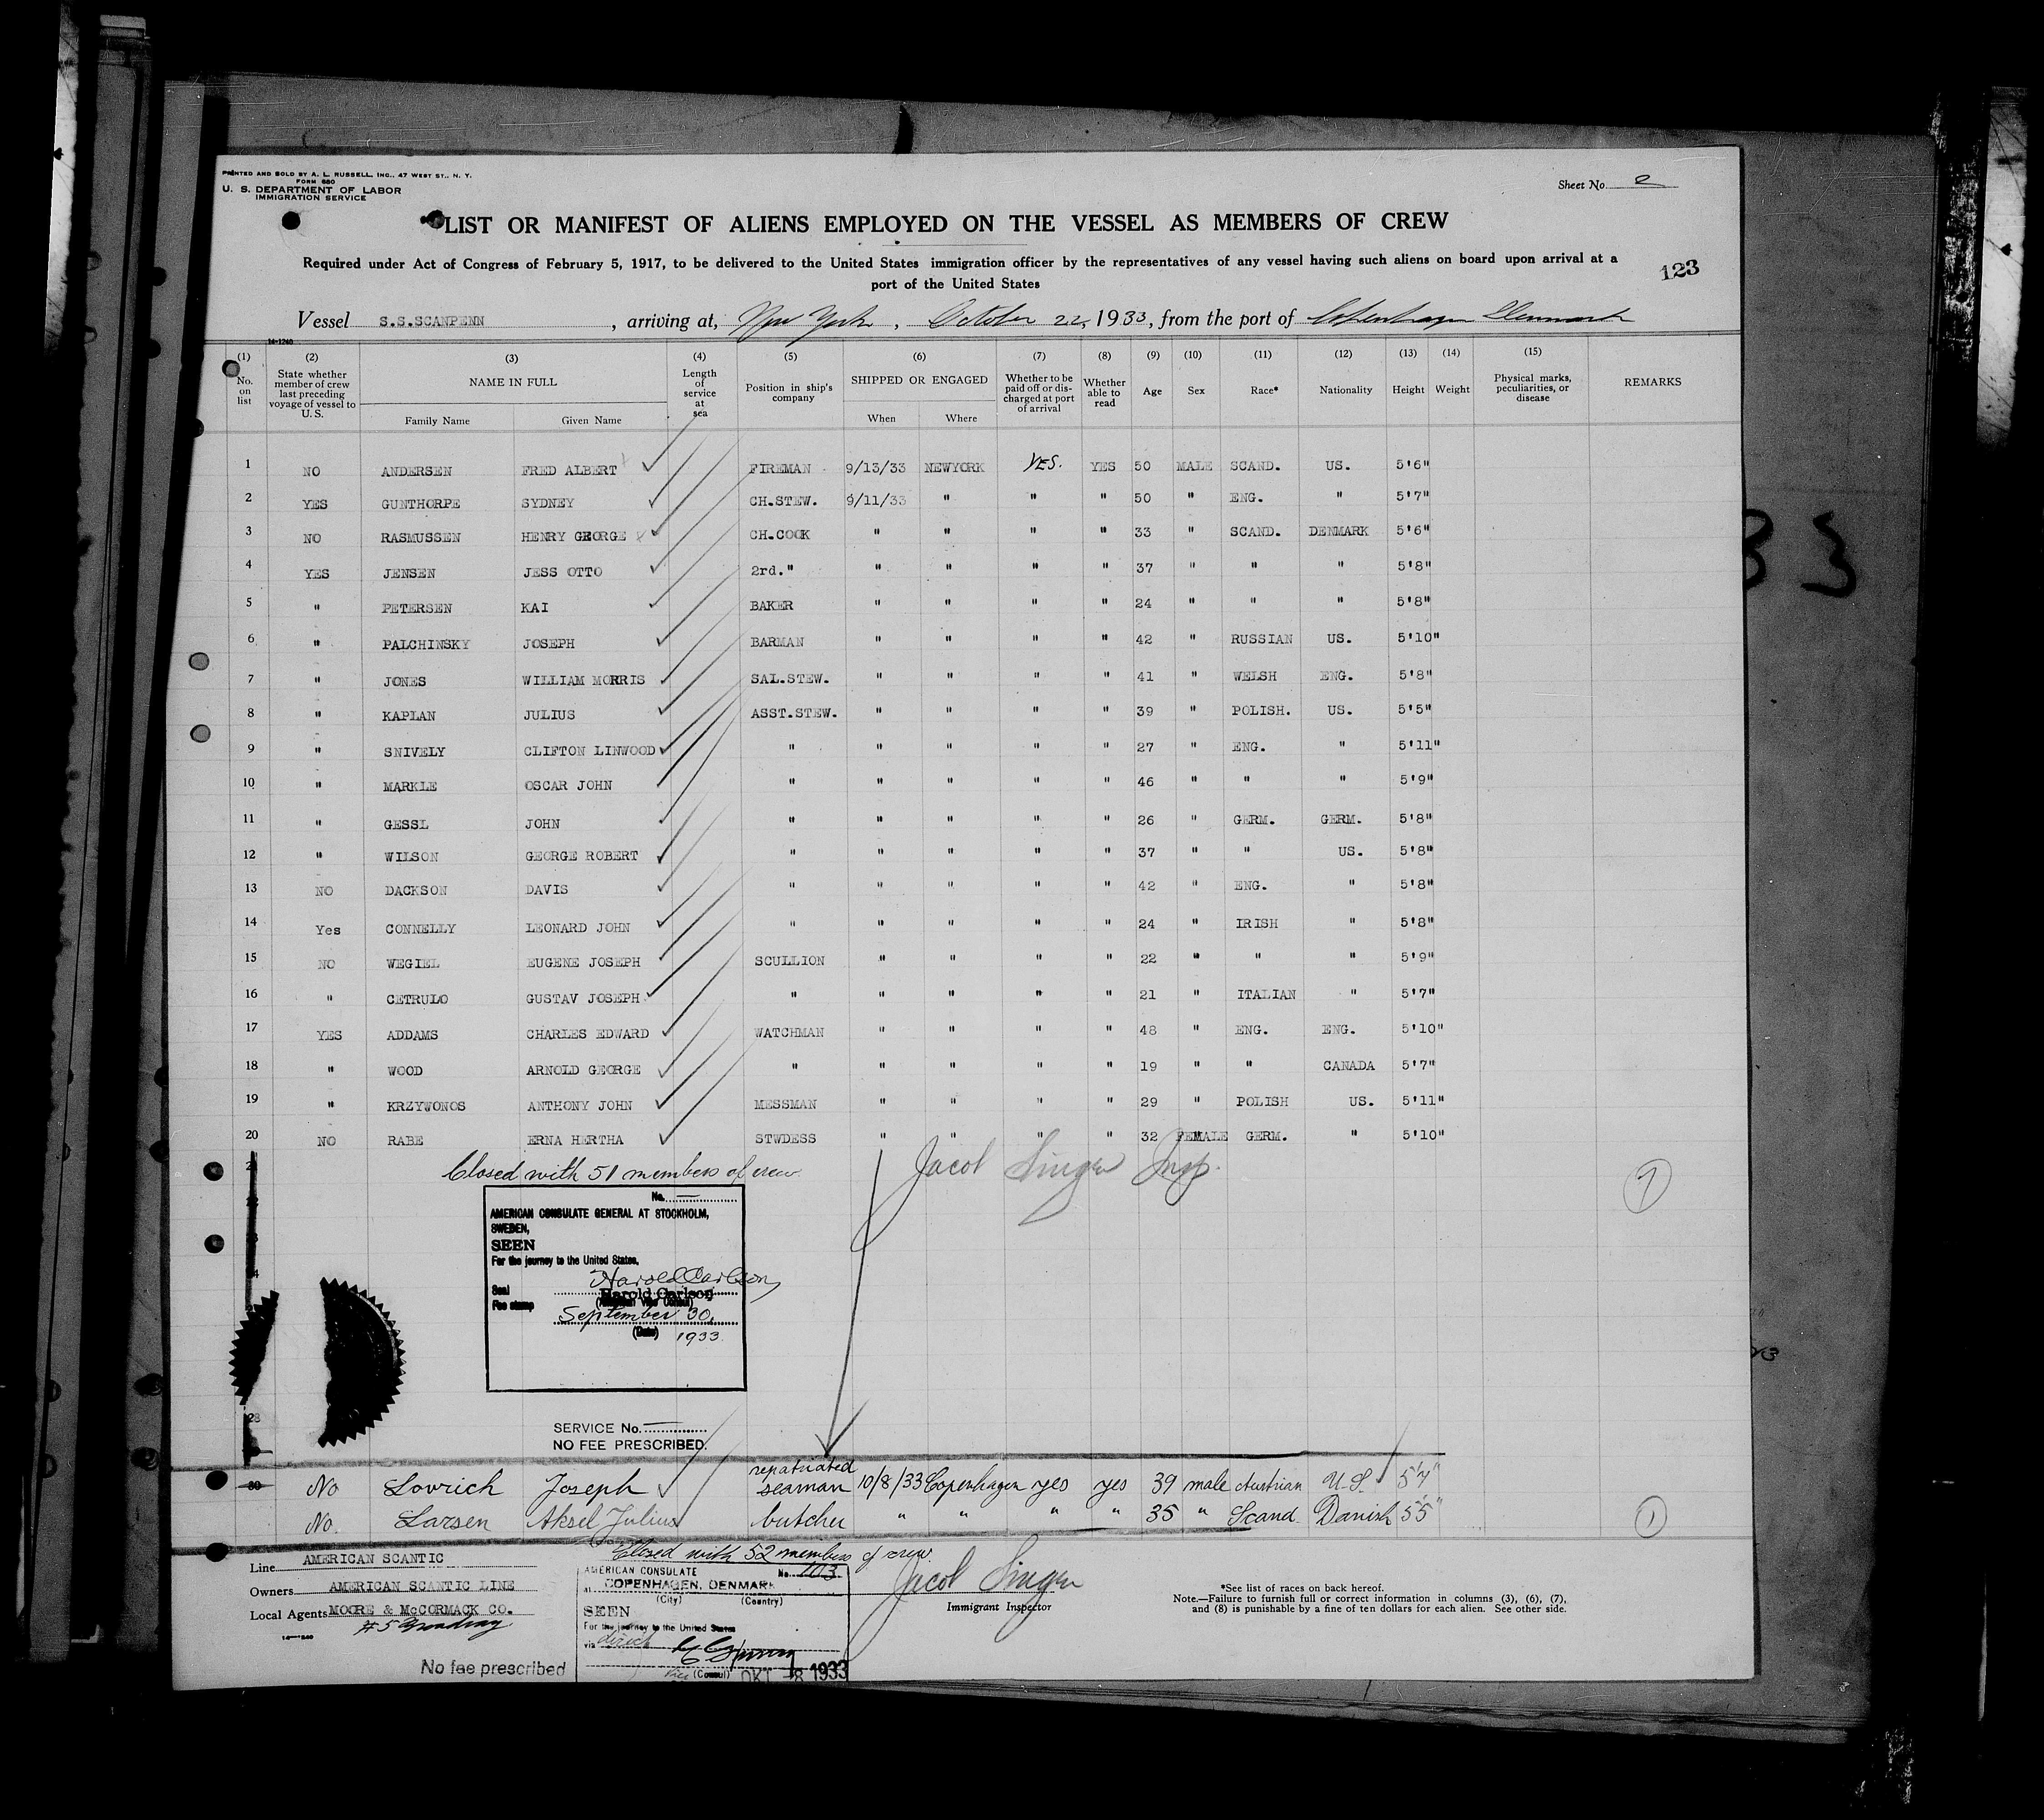 PRINTED AND SOLD BY A. L. RUSSELL, INC., 47 WEST ST., N. Y.
FORM 680
U. S. DEPARTMENT OF LABOR
IMMIGRATION SERVICE
Sheet No. 2
LIST OR MANIFEST OF ALIENS EMPLOYED ON THE VESSEL AS MEMBERS OF CREW
Required under Act of Congress of February 5, 1917, to be delivered to the United States immigration officer by the representatives of any vessel having such aliens on board upon arrival at a
port of the United States
123
Vessel S.S.SCANPENN, arriving at, New York, October 22, 1933, from the port of Copenhagen Denmark
14-1240
(1) (2) (3) (4) (5) (6) (7) (8) (9) (10) (11) (12) (13) (14) (15)
No. on list State whether member of crew last preceding voyage of vessel to U. S. NAME IN FULL Length of service at sea Position in ship's company SHIPPED OR ENGAGED Whether to be paid off or discharged at port of arrival Whether able to read Age Sex Race* Nationality Height Weight Physical marks, peculiarities, or disease REMARKS
Family Name Given Name When Where
1 NO ANDERSEN FRED ALBERT FIREMAN 9/13/33 NEWYORK YES. YES 50 MALE SCAND. US. 5'6"
2 YES GUNTHORPE SYDNEY CH.STEW. 9/11/33 " " " 50 " ENG. " 5'7"
3 NO RASMUSSEN HENRY GEORGE CH.COOK " " " " 33 " SCAND. DENMARK 5'6"
4 YES JENSEN JESS OTTO 2rd." " " " " 37 " " " 5'8"
5 " PETERSEN KAI BAKER " " " " 24 " " " 5'8"
6 " PALCHINSKY JOSEPH BARMAN " " " " 42 " RUSSIAN US. 5'10"
7 " JONES WILLIAM MORRIS SAL.STEW. " " " " 41 " WELSH ENG. 5'8"
8 " KAPLAN JULIUS ASST.STEW. " " " " 39 " POLISH. US. 5'5"
9 " SNIVELY CLIFTON LINWOOD " " " " " 27 " ENG. " 5'11"
10 " MARKLE OSCAR JOHN " " " " " 46 " " " 5'9"
11 " GESSL JOHN " " " " " 26 " GERM. GERM. 5'8"
12 " WILSON GEORGE ROBERT " " " " " 37 " " US. 5'8"
13 NO DACKSON DAVIS " " " " " 42 " ENG. " 5'8"
14 Yes CONNELLY LEONARD JOHN " " " " " 24 " IRISH " 5'8"
15 NO WEGIEL EUGENE JOSEPH SCULLION " " " " 22 " " " 5'9"
16 " CETRULO GUSTAV JOSEPH " " " " " 21 " ITALIAN " 5'7"
17 YES ADDAMS CHARLES EDWARD WATCHMAN " " " " 48 " ENG. ENG. 5'10"
18 " WOOD ARNOLD GEORGE " " " " " 19 " " CANADA 5'7"
19 " KRZYWONOS ANTHONY JOHN MESSMAN " " " " 29 " POLISH US. 5'11"
20 NO RABE ERNA HERTHA STWDESS " " " " 32 FEMALE GERM. " 5'10"
Closed with 51 members of crew.
Jacob Singer Insp.
No.
AMERICAN CONSULATE GENERAL AT STOCKHOLM,
SWEDEN,
SEEN
For the journey to the United States,
Harold Carlson
Seal Harold Carlson
Fee stamp (American Vice Consul)
September 30,
(Date) 1933.
28
SERVICE No.
NO FEE PRESCRIBED.
30 No Lovrich Joseph repatriated seaman 10/8/33 Copenhagen yes yes 39 male Austrian U.S. 5'7"
No. Larsen Aksel Julius butcher " " " " 35 " Scand. Danish 5'5"
1
Closed with 52 members of crew.
Line AMERICAN SCANTIC
Owners AMERICAN SCANTIC LINE
Local Agents MOORE & McCORMACK CO.
#5 Broadway
14-1240
No fee prescribed
AMERICAN CONSULATE No. 103
at COPENHAGEN, DENMARK
(City) (Country)
SEEN
For the journey to the United States
via direct
Vice (Consul) OKT -8 1933
Jacob Singer
Immigrant Inspector
*See list of races on back hereof.
Note.—Failure to furnish full or correct information in columns (3), (6), (7),
and (8) is punishable by a fine of ten dollars for each alien. See other side.